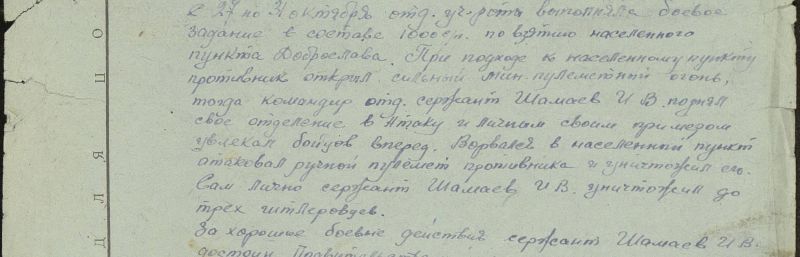 С 27 по 31 октября отд. уч. роты выполняла боевое
задание в составе 1000сп. по взятию населенного
пункта Доброслава. При подходе к населенному пункту
противник открыл сильный мин. пулеметный огонь,
тогда командир отд. сержант Шамаев И В. поднял
свое отделение в атаку и личным своим примером
увлекал бойцов вперед. Ворвался в населенный пункт
атаковал ручной пулемет противника и уничтожил его.
Сам лично сержант Шамаев И В. уничтожил до
трех гитлеровцев.
За хорошие боевые действия сержант Шамаев И В.
достоин Правительства
Д Л Я П О